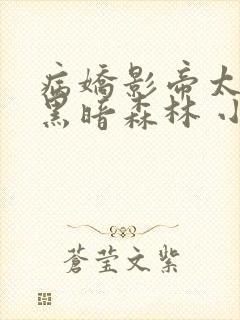 病嬌影帝太
黑暗森林 小
蒼莹文紫